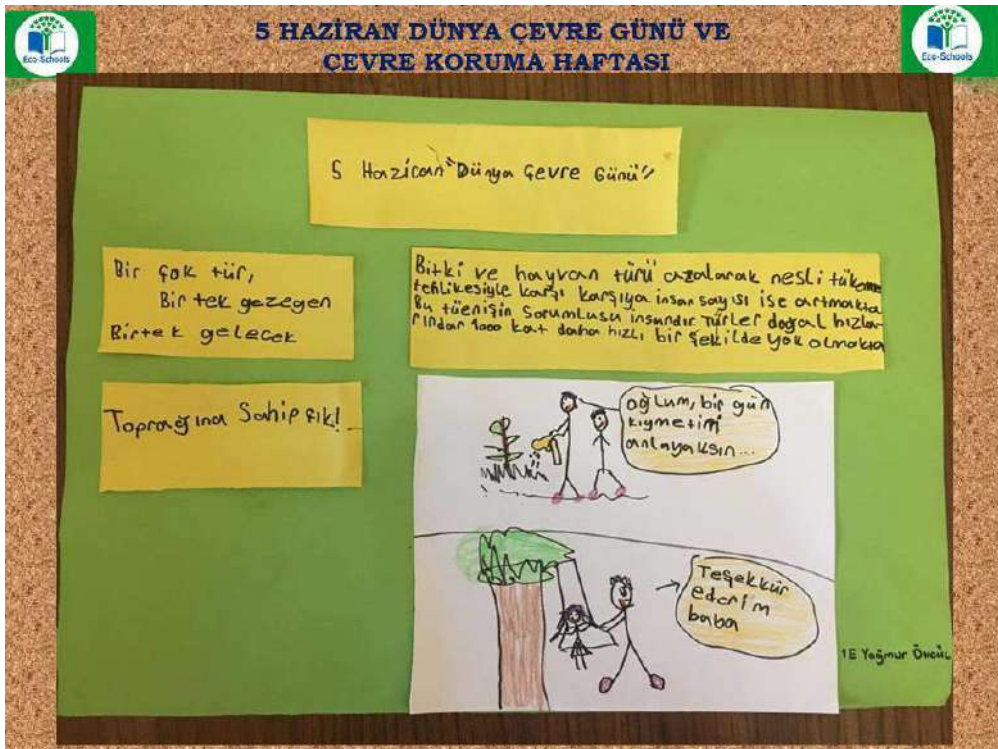 5 HAZİRAN DÜNYA ÇEVRE GÜNÜ VE
ÇEVRE KORUMA HAFTASI
Eco-Schools
Eco-Schools
5 Haziran "Dünya Çevre Günü"
Bir çok tür,
Bir tek gezegen
Birtek gelecek
Bitki ve hayvan türü azalarak nesli tükenme
tehlikesiyle karşı karşıya insan sayısı ise artmakta
Bu tüenişin Sorumlusu insandır Türler doğal hızla-
rından 1000 kat daha hızlı bir şekilde yok olmakta
Toprağına Sahip çık!
oğlum, bir gün
kıymetini
anlayaksın...
Teşekkür
ederim
baba
1E Yağmur Öncül